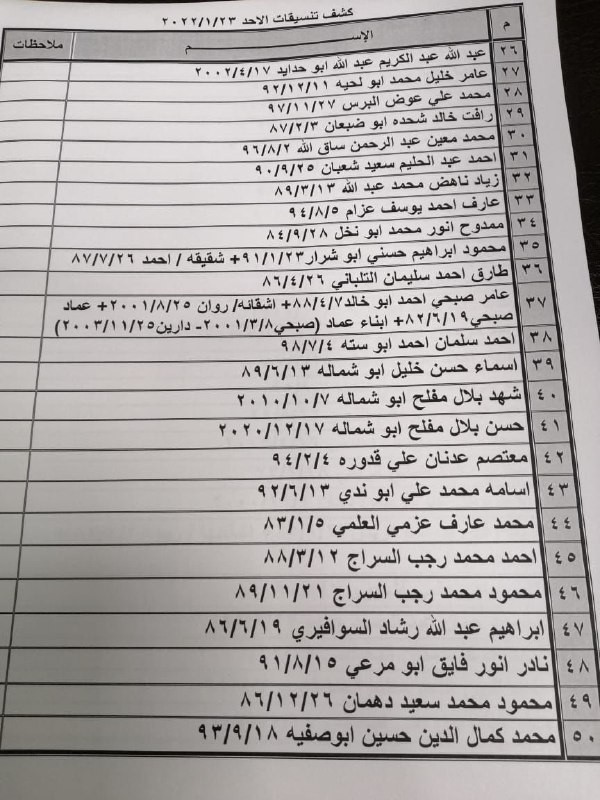 كشف تنسيقات الاحد ٢٠٢٢/١/٢٣
م الإســـم ملاحظات
٢٦ عبد الله عبد الكريم عبد الله ابو حدايد ٢٠٠٢/٤/١٧
٢٧ عامر خليل محمد ابو لحيه ٩٢/١٢/١١
٢٨ محمد علي عوض البرس ٩٧/١١/٢٧
٢٩ رافت خالد شحده ابو ضبعان ٨٧/٢/٣
٣٠ محمد معين عبد الرحمن ساق الله ٩٦/٨/٢
٣١ احمد عبد الحليم سعيد شعبان ٩٠/٩/٢٥
٣٢ زياد ناهض محمد عبد الله ٨٩/٣/١٣
٣٣ عارف احمد يوسف عزام ٩٤/٨/٥
٣٤ ممدوح انور محمد ابو نخل ٨٤/٩/٢٨
٣٥ محمود ابراهيم حسني ابو شرار٩١/١/٢٣+ شقيقه / احمد ٨٧/٧/٢٦
٣٦ طارق احمد سليمان التلباني ٨٦/٤/٢٦
٣٧ عامر صبحي احمد ابو خالد٨٨/٤/٧+ اشقائه/ روان ٢٠٠١/٨/٢٥+ عماد
صبحي٨٢/٦/١٩+ ابناء عماد (صبحي٢٠٠١/٣/٨- دارين٢٠٠٣/١١/٢٥)
٣٨ احمد سلمان احمد ابو سته ٩٨/٧/٤
٣٩ اسماء حسن خليل ابو شماله ٨٩/٦/١٣
٤٠ شهد بلال مفلح ابو شماله ٢٠١٠/١٠/٧
٤١ حسن بلال مفلح ابو شماله ٢٠٢٠/١٢/١٧
٤٢ معتصم عدنان علي قدوره ٩٤/٢/٤
٤٣ اسامه محمد علي ابو ندي ٩٢/٦/١٣
٤٤ محمد عارف عزمي العلمي ٨٣/١/٥
٤٥ احمد محمد رجب السراج ٨٨/٣/١٢
٤٦ محمود محمد رجب السراج ٨٩/١١/٢١
٤٧ ابراهيم عبد الله رشاد السوافيري ٨٦/٦/١٩
٤٨ نادر انور فايق ابو مرعي ٩١/٨/١٥
٤٩ محمود محمد سعيد دهمان ٨٦/١٢/٢٦
٥٠ محمد كمال الدين حسين ابوصفيه ٩٣/٩/١٨